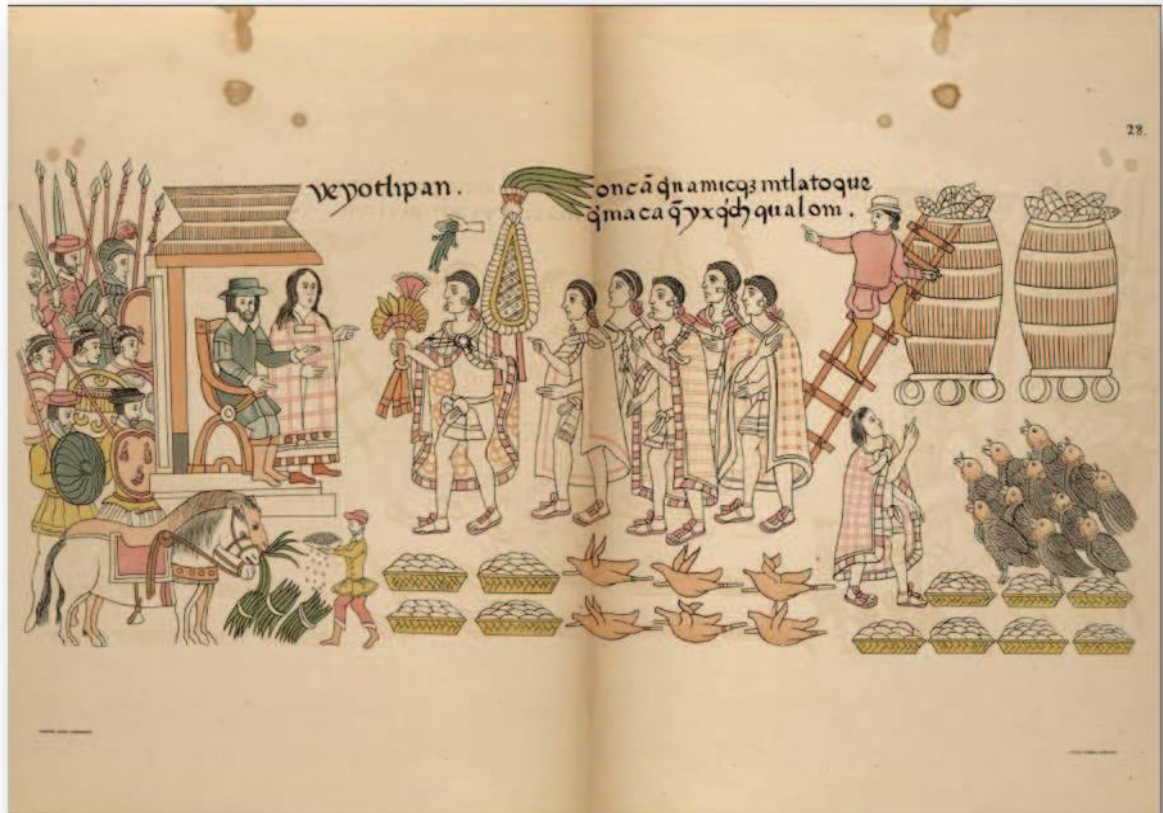 veyotlipan.
oncã q̃namicqȝ intlatoque
q̃macaq̃yxq̃ch qualoni.
28.